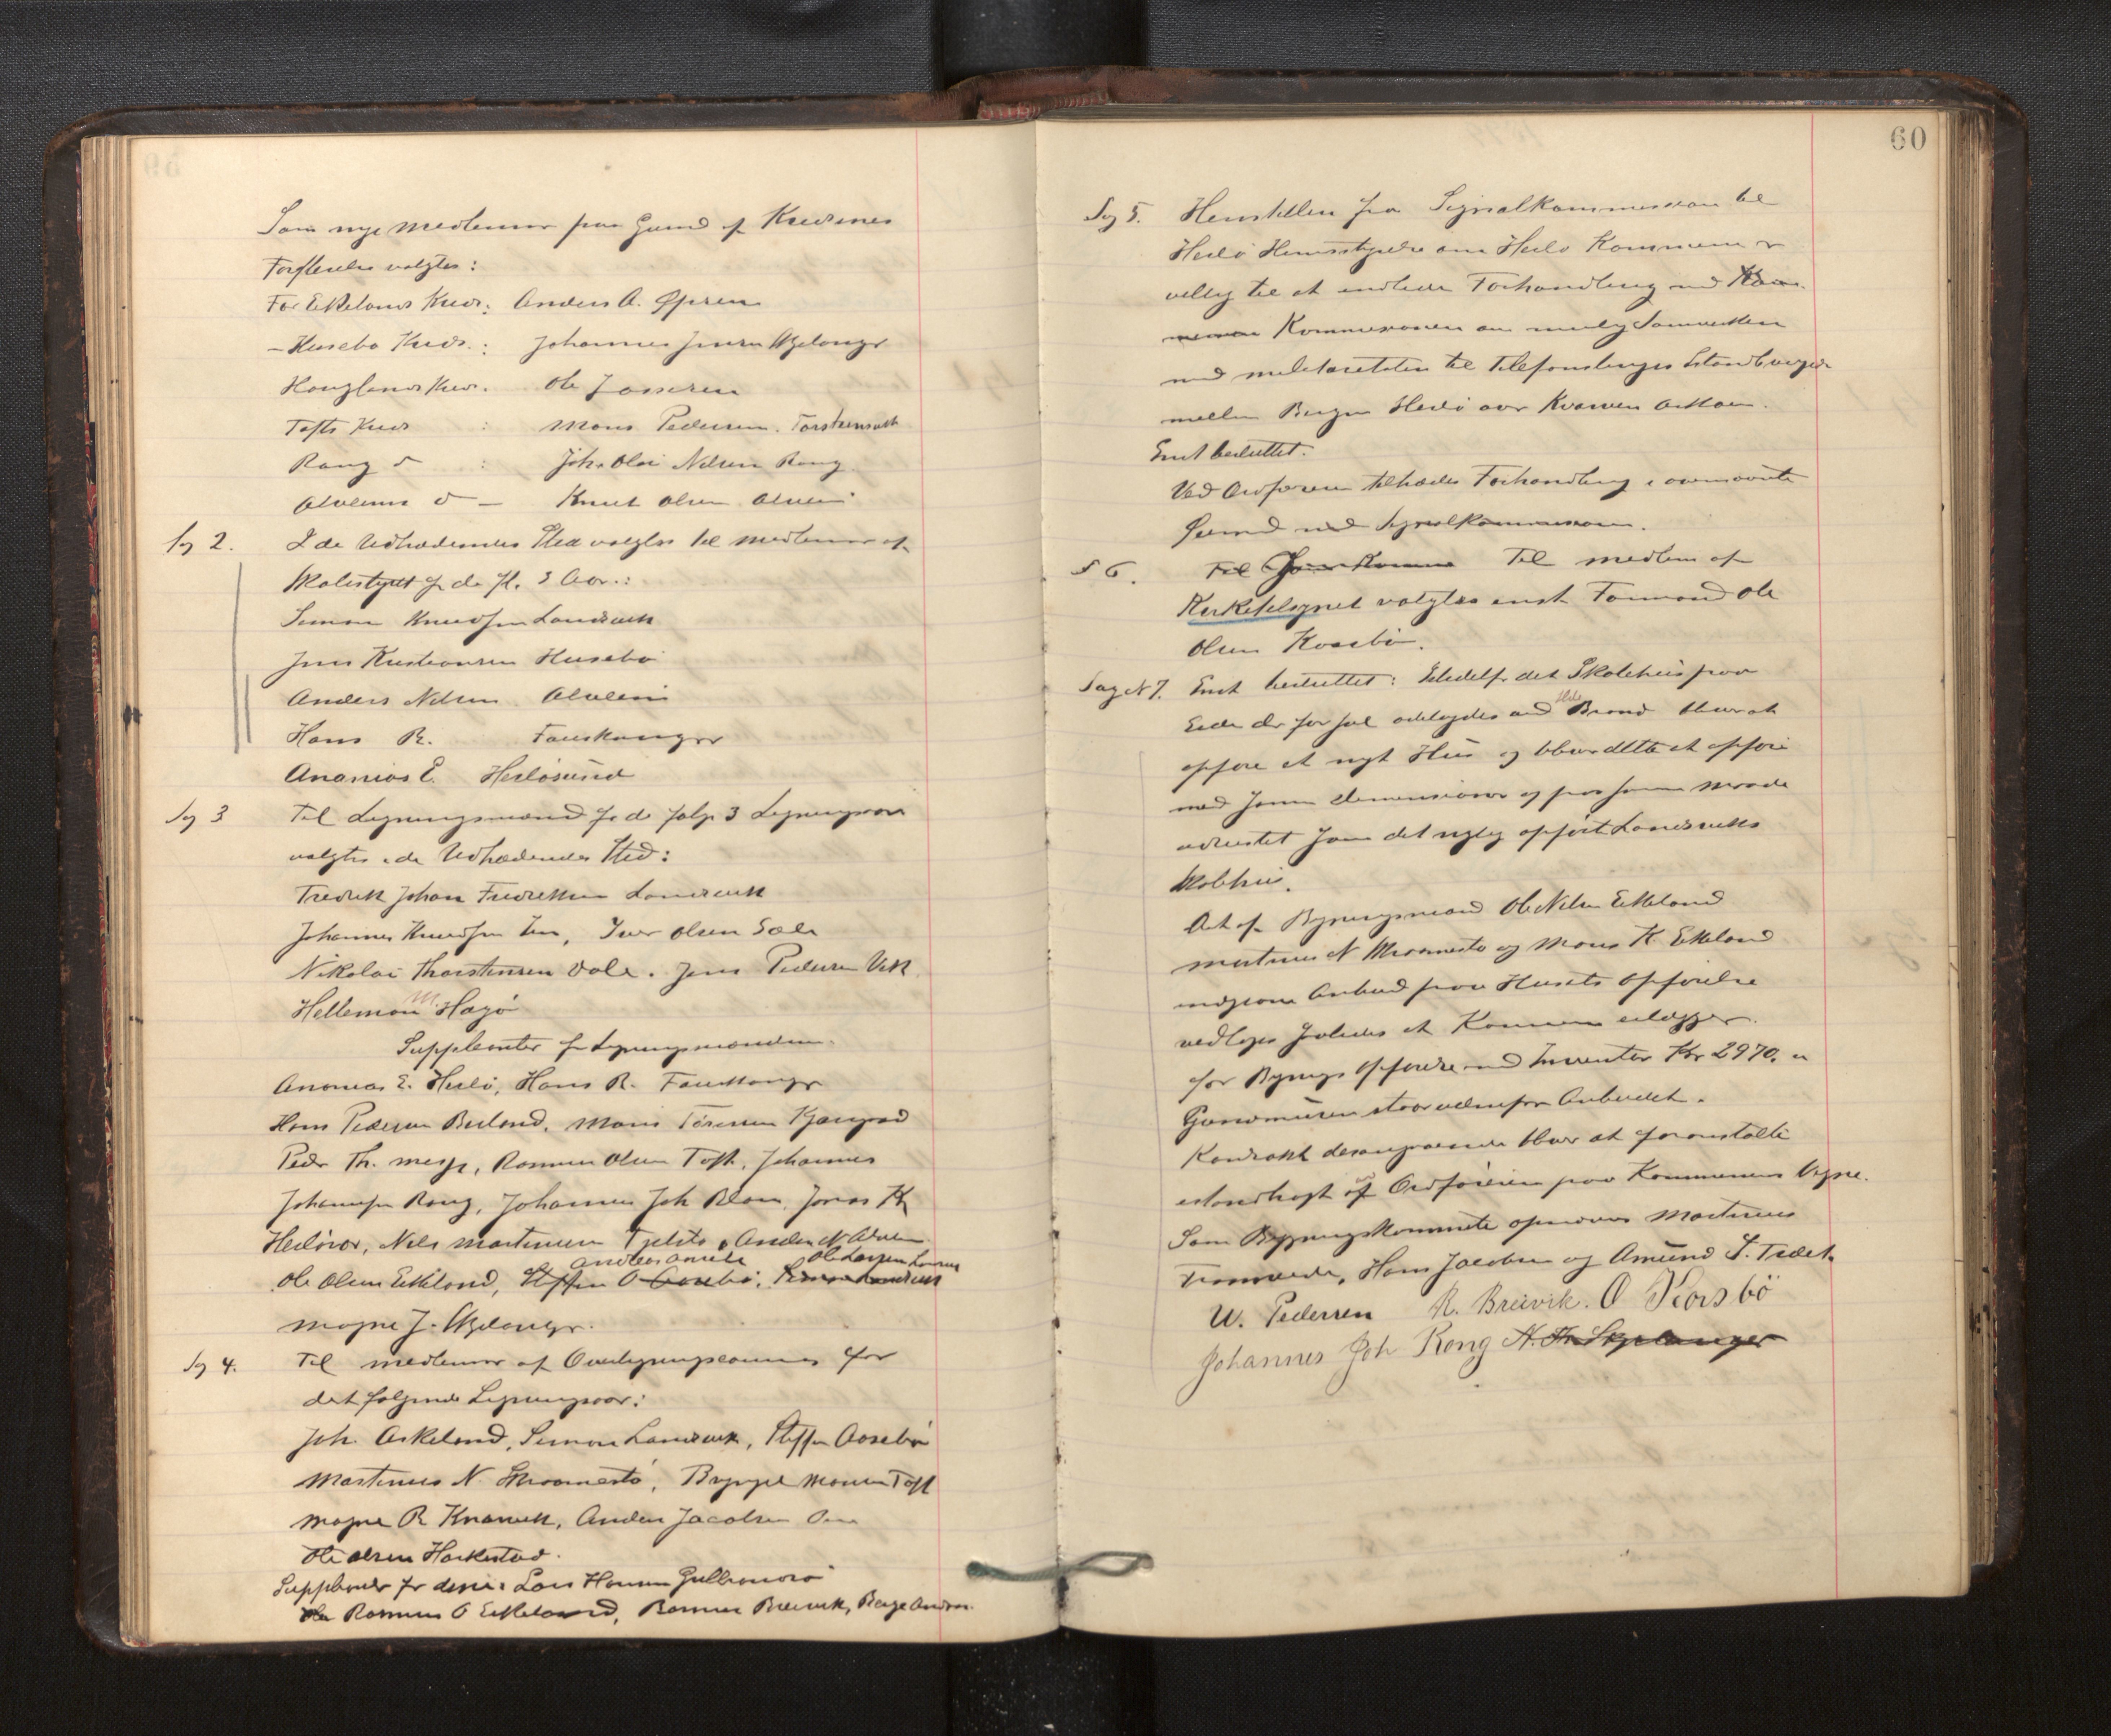 Som nye medlemmer paa Grund af Kredsenes
Forflerelse valgtes:
For Eikelands Kreds: Anders A. Øpsen
– Husebø Kreds.: Johannes Jensen Mjelanger
Hauglands Kreds. Ole Jansen
Tofts Kreds : Mons Pedersen. Torsteinsvik
Rong d : Joh. Olai Nilsen Rong
Alvem d – Knut Olsen Alvem
Sg 2. I de Udtrædendes Sted valgtes til medlemmer af
Skolestyret for de fl. 3 Aar.:
Simon Knudsen Landsvik
Jens Kristiansen Husebø
Anders Nilsen Alvem
Hans R. Fauskanger
Ananias E. Herløsund
Sg 3 Til Ligningsmænd for de følg. 3 Ligningsaar
valgtes i de Udtrædendes Sted:
Fredrik Johan Fredriksen Landsvik
Johannes Knudsen , Iver Olsen Sæle
Nikolai Thorstensen Dale. Jens Pedersen Vik
Hellemann M. Hagø
Suppleanter for Ligningsmændene.
Ananias E. Herlø, Hans R. Fauskanger
Hans Pedersen Berland, Mons Tøressen Kjærgard
Peder Th. Misje, Rasmus Olsen Toft, Johannes
Johannesen Rong, Johannes Joh Blom, Jonas K
Herløvær, Nils Martinsen Tjelsto, Anders N Alvem
Anders Ole Larsen
Ole Olsen Eikeland, Steffen O Aasebø, Simon Landsvik
Mogne J. Mjelanger.
Sg 4. Til medlemmer af Overligningscommis for
det følgende Ligningsaar:
Joh. Askeland, Simon Landsvik, Steffen Aasebø
Martinus N. Skraamestø, Brynjel Monsen Toft
Mogne R Knarvik, Anders Jacobsen
Ole Olsen Harkestad.
Suppleanter for disse: Lars Hansen Gulbrandsø
Rasmus O Eikeland, Rasmus Breivik, Børge
60
Sag 5. Henstillen fra Signalkommissionen til
Herlø Herredsstyrelse om Herlø Kommune er
villig til at indlede Forhandling med
Kommissionen om mulig Samvirken
med militæretaten til Telefonlinjes Istandbringelse
mellem Bergen Herlø over Kvarven Askøen.
Enst besluttet.
Ved Ordføreren tiltrædes Forhandling i ovennævnte
Øiemed med Signalkommissionen.
S 6. Til Til medlem af
Kirketilsynet valgtes enst. Formand Ole
Olsen Kosebø.
Sag N 7. Enst besluttet: Istedetfor det Skolehus paa
Eide der før Jul ødelagdes ved Ilde Brand bliver at
opføre et nyt Hus og bliver dette at opføre
med samme Dimensioner og paa samme Maade
udrustet som det nylig opført Landsviks
Skolehus.
Det af Bygningsmænd Ole Nilsen Eikeland
Martinus N Skraamestø og Mons K. Eikeland
indgivne Anbud paa Husets Opførelse
vedtages saaledes at Kommunen erlægger
for Bygnings Opførelse med Inventar Kr 2970.
Grundmuren staar udenfor Anbudet.
Kontrakt desangaaende bliver at foranstalte
istandbragt af Ordføreren paa Kommunens Vegne.
Som Bygningskommite opnævnes Martinus
, Hans Jacobsen og Amund S. Træet.
W. Pedersen R. Breivik. O Kosbö
Johannes Joh Rong A.